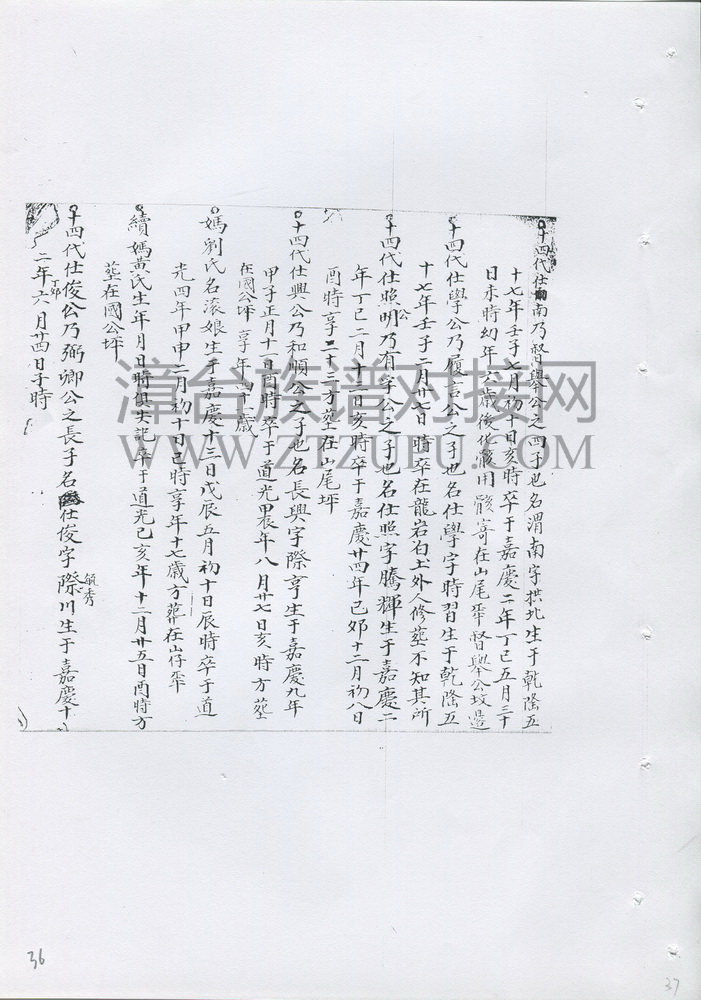 十四代仕南乃督舉公之四子也名渭南字拱北生于乾隆五
十七年壬子七月初十日亥時卒于嘉慶二年丁巳五月三十
日未時幼年六歲後化骸用骸寄在山尾坪督舉公坟邊
十四代仕學公乃履言公之子也名仕學字時習生于乾隆五
十七年壬子二月廿七日時卒在龍岩白土外人修葬不知其所
十四代仕照明公乃有字公之子也名仕照字騰輝生于嘉慶二
年丁巳二月十二日亥時卒于嘉慶廿四年己卯十二月初八日
酉時享二十三方葬在山尾坪
十四代仕興公乃和順公之子也名長興字際亨生于嘉慶九年
甲子正月十一日酉時卒于道光甲辰年八月廿七日亥時方葬
在國公坪享年四十一歲
媽劉氏名滚娘生于嘉慶十三日戊辰五月初十日辰時卒于道
光四年甲申二月初十日己時享年十七歲方葬在山仔坪
續媽黃氏生年月日時俱失記卒于道光己亥年十二月廿五日酉時方
葬在國公坪
十四代仕俊公乃弼卿公之長子名仕俊字際川毓秀生于嘉慶十
二年丁卯六月廿四日子時
漳台族谱对接网
WWW.ZTZUPU.COM
36
37